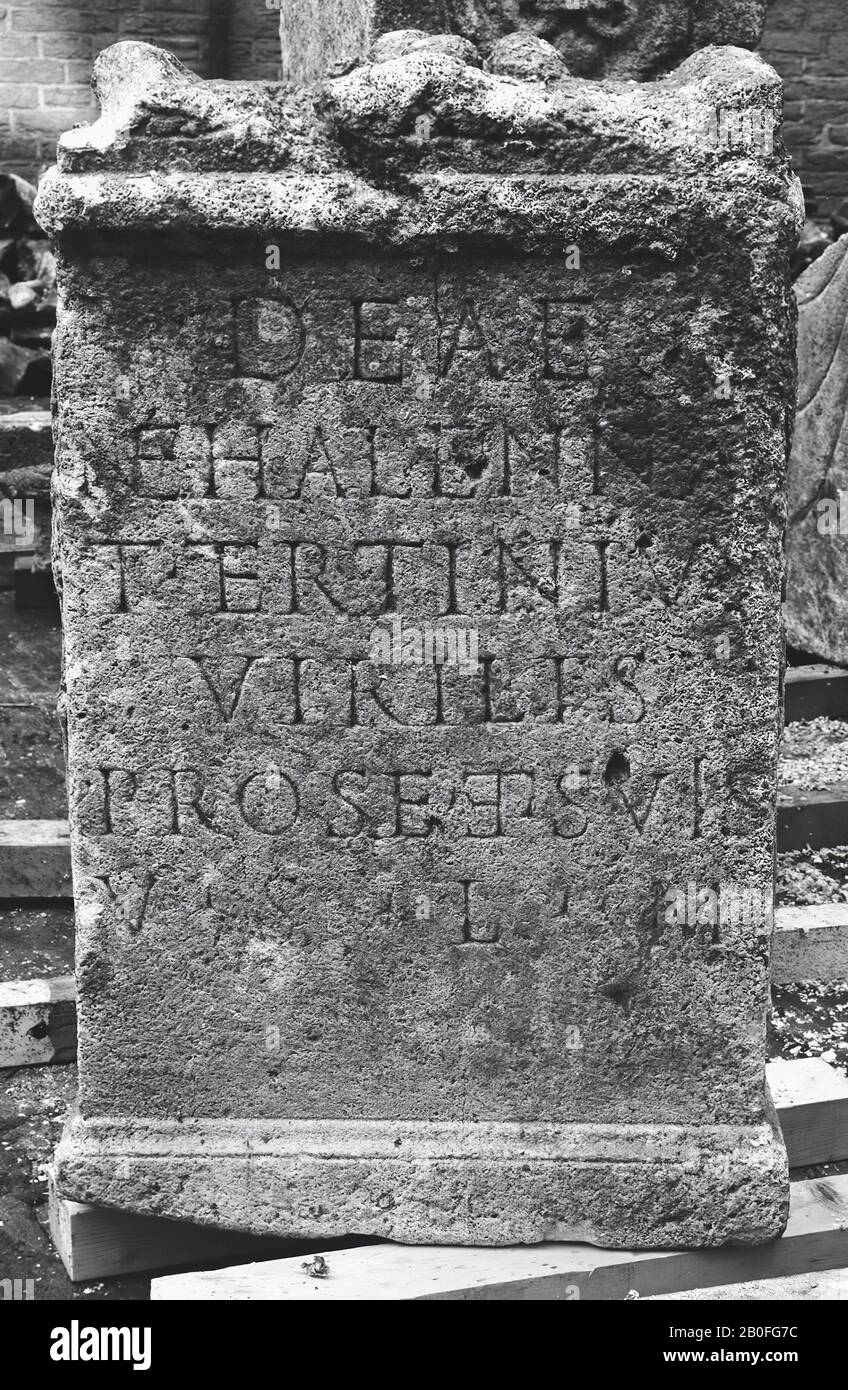 DEAE
EHALENNI
TERTINIV
VIRILIS
PROSEETSVIS
V S L M
alamy
Image ID: 2B0FG7C
www.alamy.com